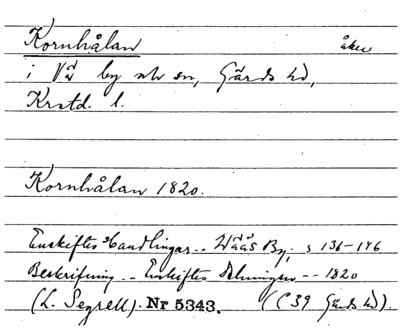 Kornhålan åker
i Vä by ok sn, Gärds hd,
Krstd. l.
Kornhålan 1820.
Enskiftes Handlingar .. Wääs By; s 136-146
Beskrifning .. Enskiftes Delningen -- 1820
(L. Segrell). Nr 5343. (C 39 Gärds hd).